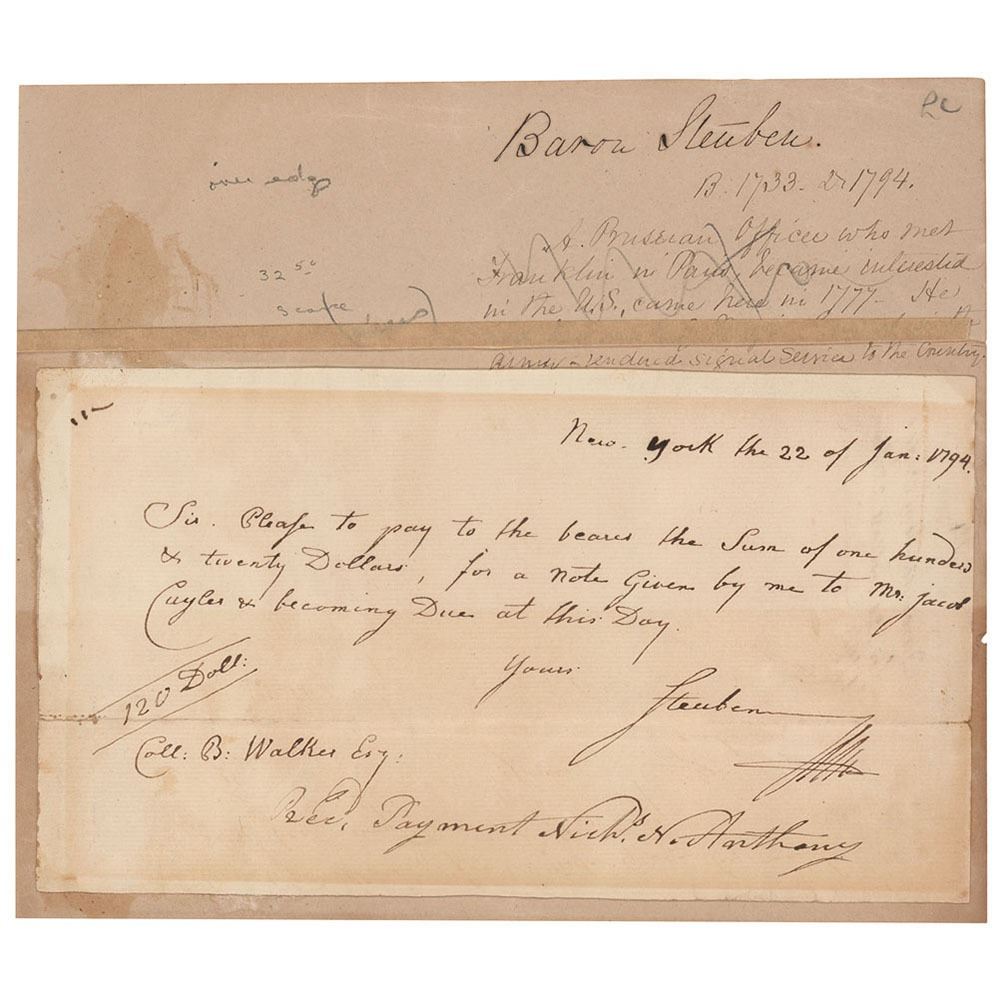 Rc
Baron Steuben.
B. 1733. D. 1794.
over edge
A. Prussian Officer who met
Franklin in Paris, became interested
in the U.S., came here in 1777 - He
32 50
Army - rendered signal service to the Country.
New-york the 22 of Jan: 1794.
Sir. Please to pay to the bearer the Sum of one hunderd
& twenty Dollars, for a Note Given by me to Mr: Jacob
Cuyler & becoming Due at this Day.
Yours
Steuben
120 Doll:
Coll: B: Walker Esq:
Recd, Payment Nichs. N. Anthony